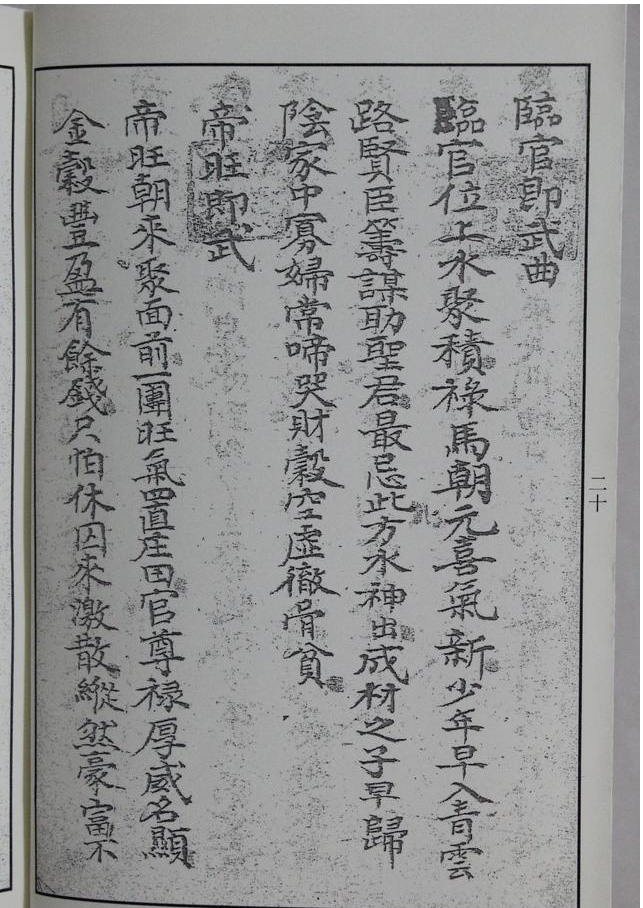 臨官即武曲
臨官位上水聚積祿馬朝元喜氣新少年早入青雲
路賢臣籌謀助聖君最忌此方水神出成材之子早歸
陰家中寡婦常啼哭財穀空虛徹骨貧
帝旺即武
帝旺朝來聚面前一團旺氣置庄田官尊禄厚威名顯
金穀豐盈有餘錢只怕休囚來激散縱然豪富不
二十